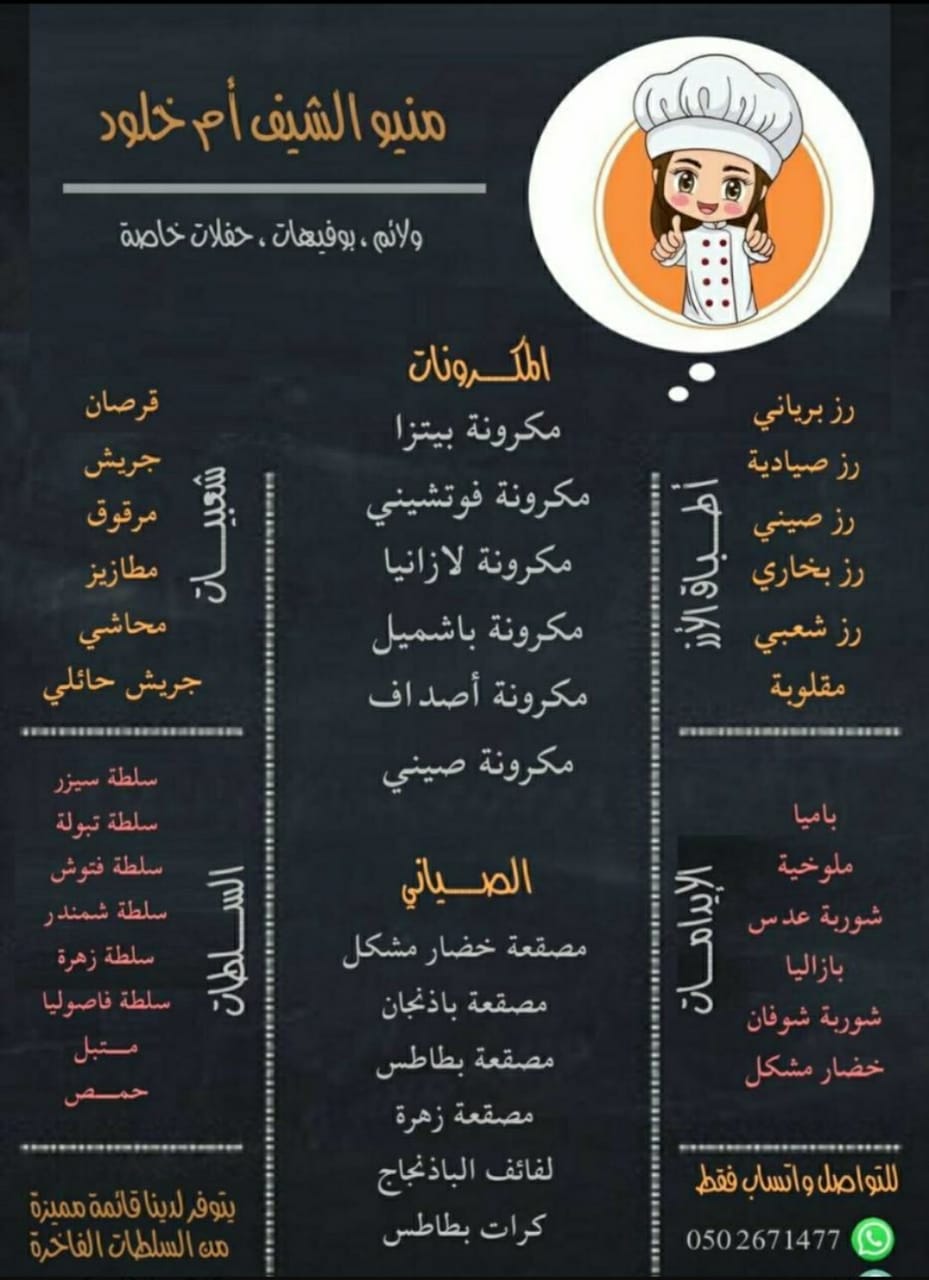 منيو الشيف أم خلود
ولائم ، بوفيهات ، حفلات خاصة
أطباق الأرز
رز برياني
رز صيادية
رز صيني
رز بخاري
رز شعبي
مقلوبة
المكرونات
مكرونة بيتزا
مكرونة فوتشيني
مكرونة لازانيا
مكرونة باشميل
مكرونة أصداف
مكرونة صيني
شعبيات
قرصان
جريش
مرقوق
مطازيز
محاشي
جريش حائلي
الإيدامات
باميا
ملوخية
شوربة عدس
بازاليا
شوربة شوفان
خضار مشكل
الصياني
مصقعة خضار مشكل
مصقعة باذنجان
مصقعة بطاطس
مصقعة زهرة
لفائف الباذنجاج
كرات بطاطس
السلطات
سلطة سيزر
سلطة تبولة
سلطة فتوش
سلطة شمندر
سلطة زهرة
سلطة فاصوليا
متبل
حمص
للتواصل واتساب فقط
050 2671477
يتوفر لدينا قائمة مميزة
من السلطات الفاخرة